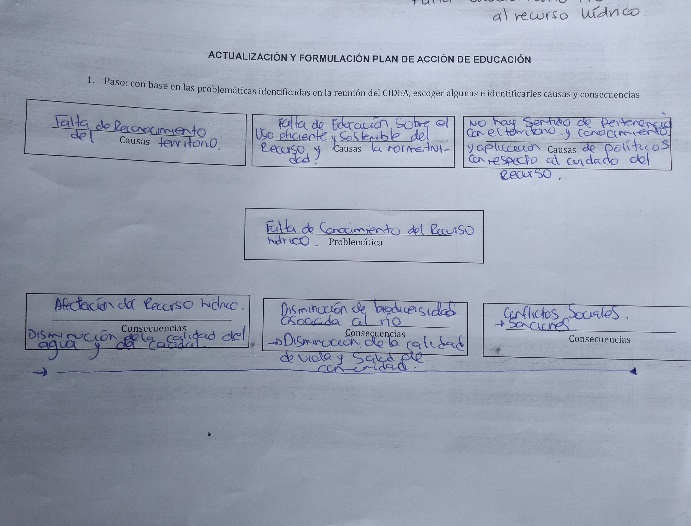 al recurso hídrico
ACTUALIZACIÓN Y FORMULACIÓN PLAN DE ACCIÓN DE EDUCACIÓN
1. Paso: con base en las problemáticas identificadas en la reunión del CIDEA, escoger algunas e identificarles causas y consecuencias
Falta de Reconocimiento
del territorio.
Causas
Falta de Educación sobre el
Uso eficiente y sostenible del
Recurso, y la normativi-
dad.
Causas
No hay sentido de pertenencia
con el territorio y conocimiento
y aplicación de políticas
Causas
con respecto al cuidado del
Recurso.
Falta de Conocimiento del Recurso
hídrico.
Problemática
Afectación del Recurso hídrico.
Consecuencias
Disminución de la calidad del
agua y del caudal.
Disminución de biodiversidad
asociada al río
Consecuencias
→ Disminución de la calidad
de vida y salud de
comunidad.
Conflictos Sociales.
→ Sanciones
Consecuencias